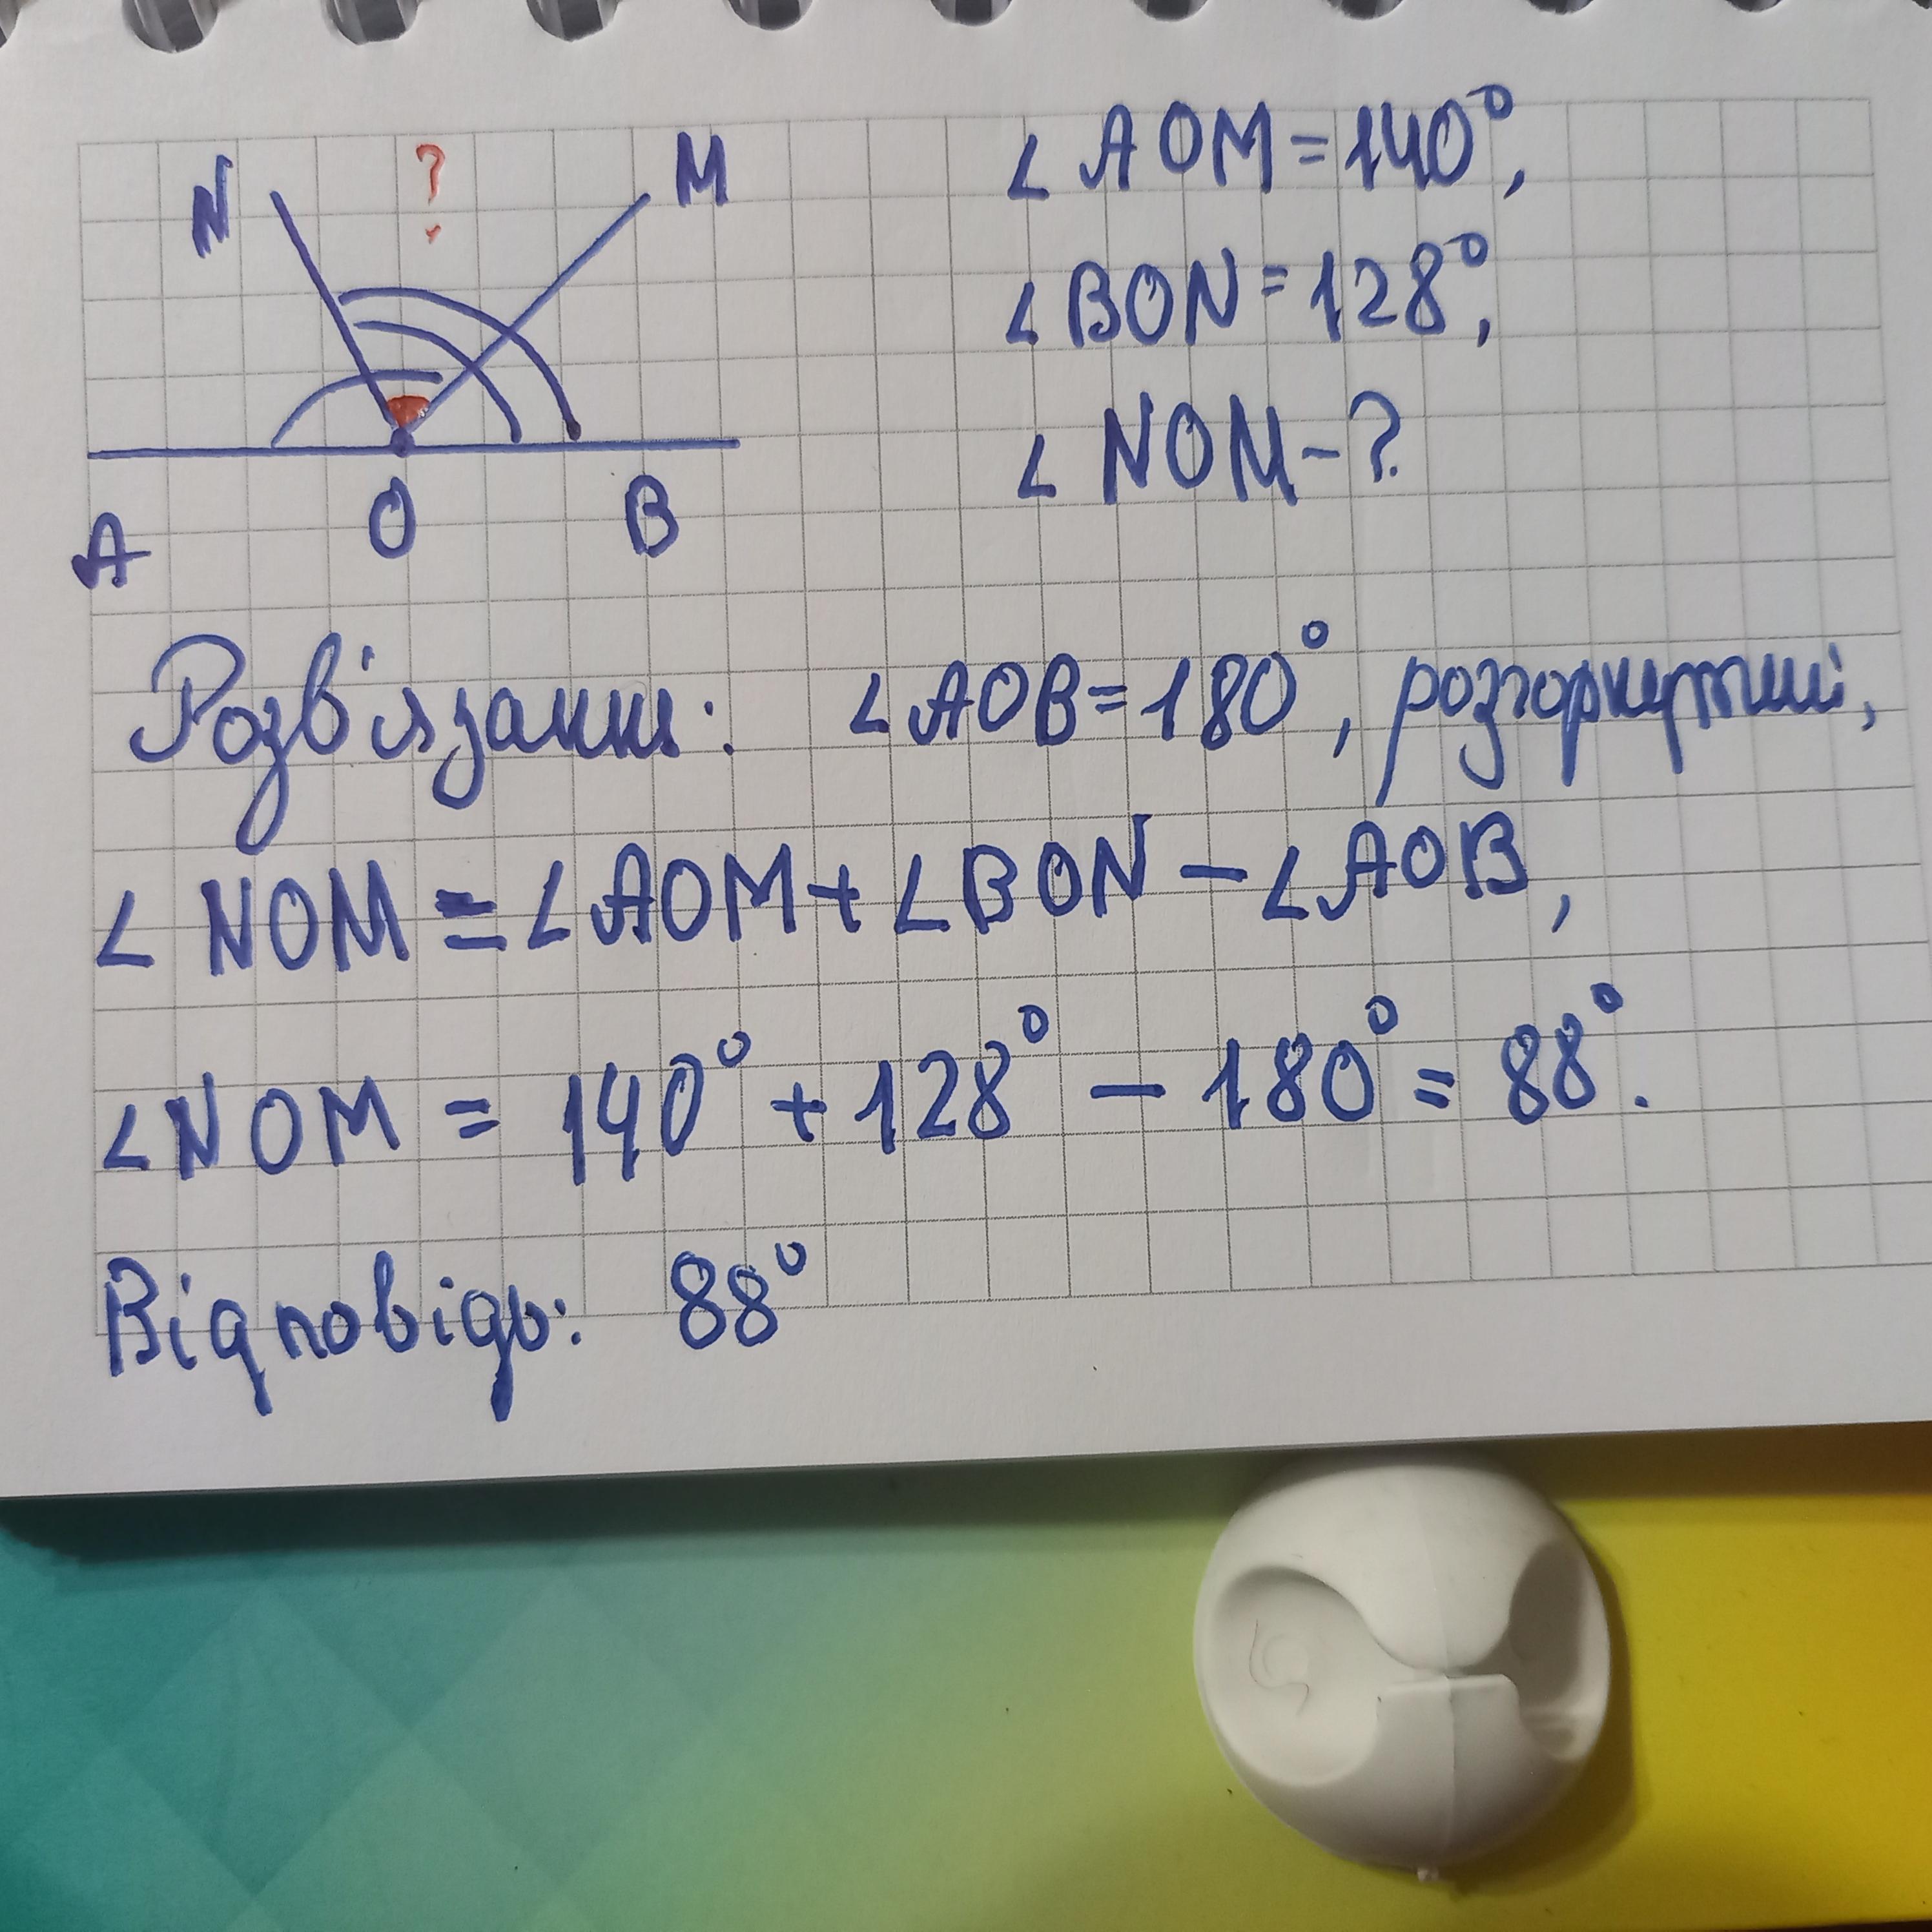 N ? M
A O B
∠ AOM = 140°,
∠ BON = 128°,
∠ NOM - ?
Розв'язання: ∠ AOB = 180°, розгорнутий,
∠ NOM = ∠ AOM + ∠ BON - ∠ AOB,
∠ NOM = 140° + 128° - 180° = 88°.
Відповідь: 88°